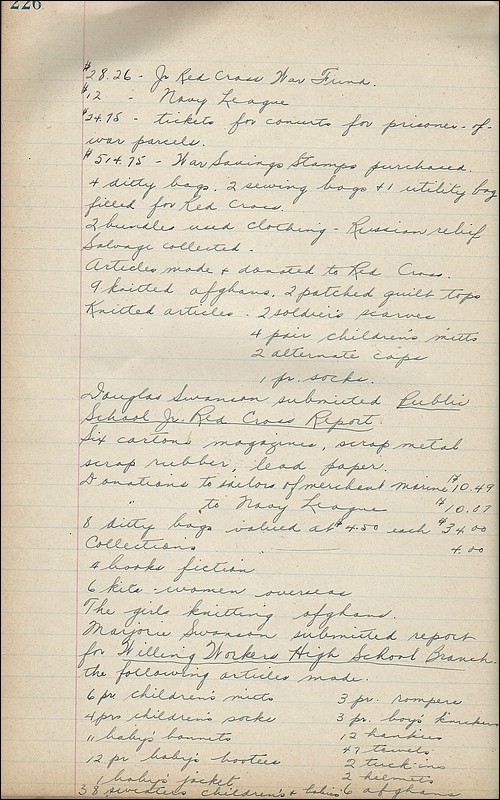 226
$28.26 - Jr Red Cross War Fund.
$12 - Navy League
$24.75 - tickets for concerts for prisoner-of-
war parcels.
$514.75 - War Savings Stamps purchased.
4 ditty bags, 2 sewing bags + 1 utility bag
filled for Red Cross.
2 bundles used clothing - Russian relief
Salvage collected.
Articles made + donated to Red Cross.
9 knitted afghans, 2 patched quilt tops
Knitted articles - 2 soldier's scarves
4 pair children's mitts
2 alternate caps
1 pr. socks.
Douglas Swanson submitted Public
School Jr. Red Cross Report.
Six cartons magazines, scrap metal
scrap rubber, lead paper.
Donations to sailors of merchant marine $10.49
" to Navy League $10.07
8 ditty bags valued at $4.50 each $34.00
Collections 4.00
4 books fiction
6 kits - women overseas
The girls knitting afghans.
Marjorie Swanson submitted report
for Willing Workers High School Branch.
the following articles made.
6 pr children's mitts 3 pr. rompers
4 prs children's socks 3 pr. boy's knickers
11 baby's bonnets 12 hankies
12 pr baby's bootees 47 towels
1 baby's jacket 2 tuck-ins
2 helmets
38 sweaters children's + babies 6 afghans